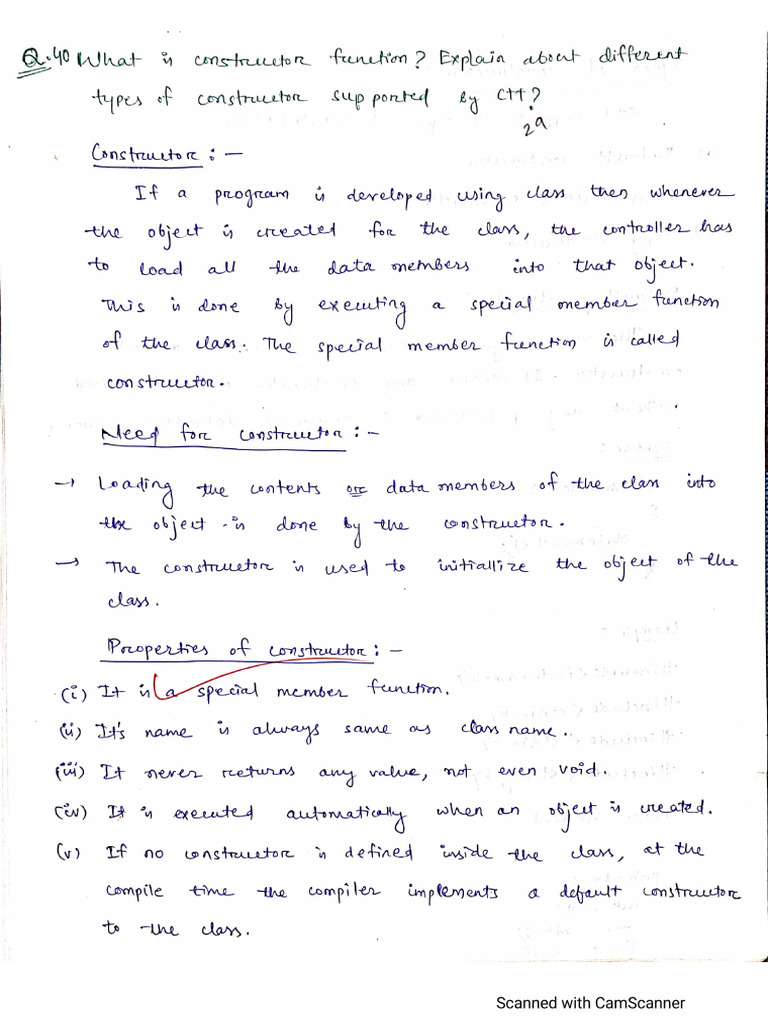 Q.40 What is constructor function? Explain about different
types of constructor supported by C++?
29
Constructor :-
If a program is developed using class then whenever
the object is created for the class, the controller has
to load all the data members into that object.
This is done by executing a special member function
of the class. The special member function is called
constructor.
Need for constructor :-
→ Loading the contents or data members of the class into
the object is done by the constructor.
→ The constructor is used to initiallize the object of the
class.
Properties of constructor :-
(i) It is a special member function.
(ii) It's name is always same as class name.
(iii) It never returns any value, not even void.
(iv) It is executed automatically when an object is created.
(v) If no constructor is defined inside the class, at the
compile time the compiler implements a default constructor
to the class.
Scanned with CamScanner